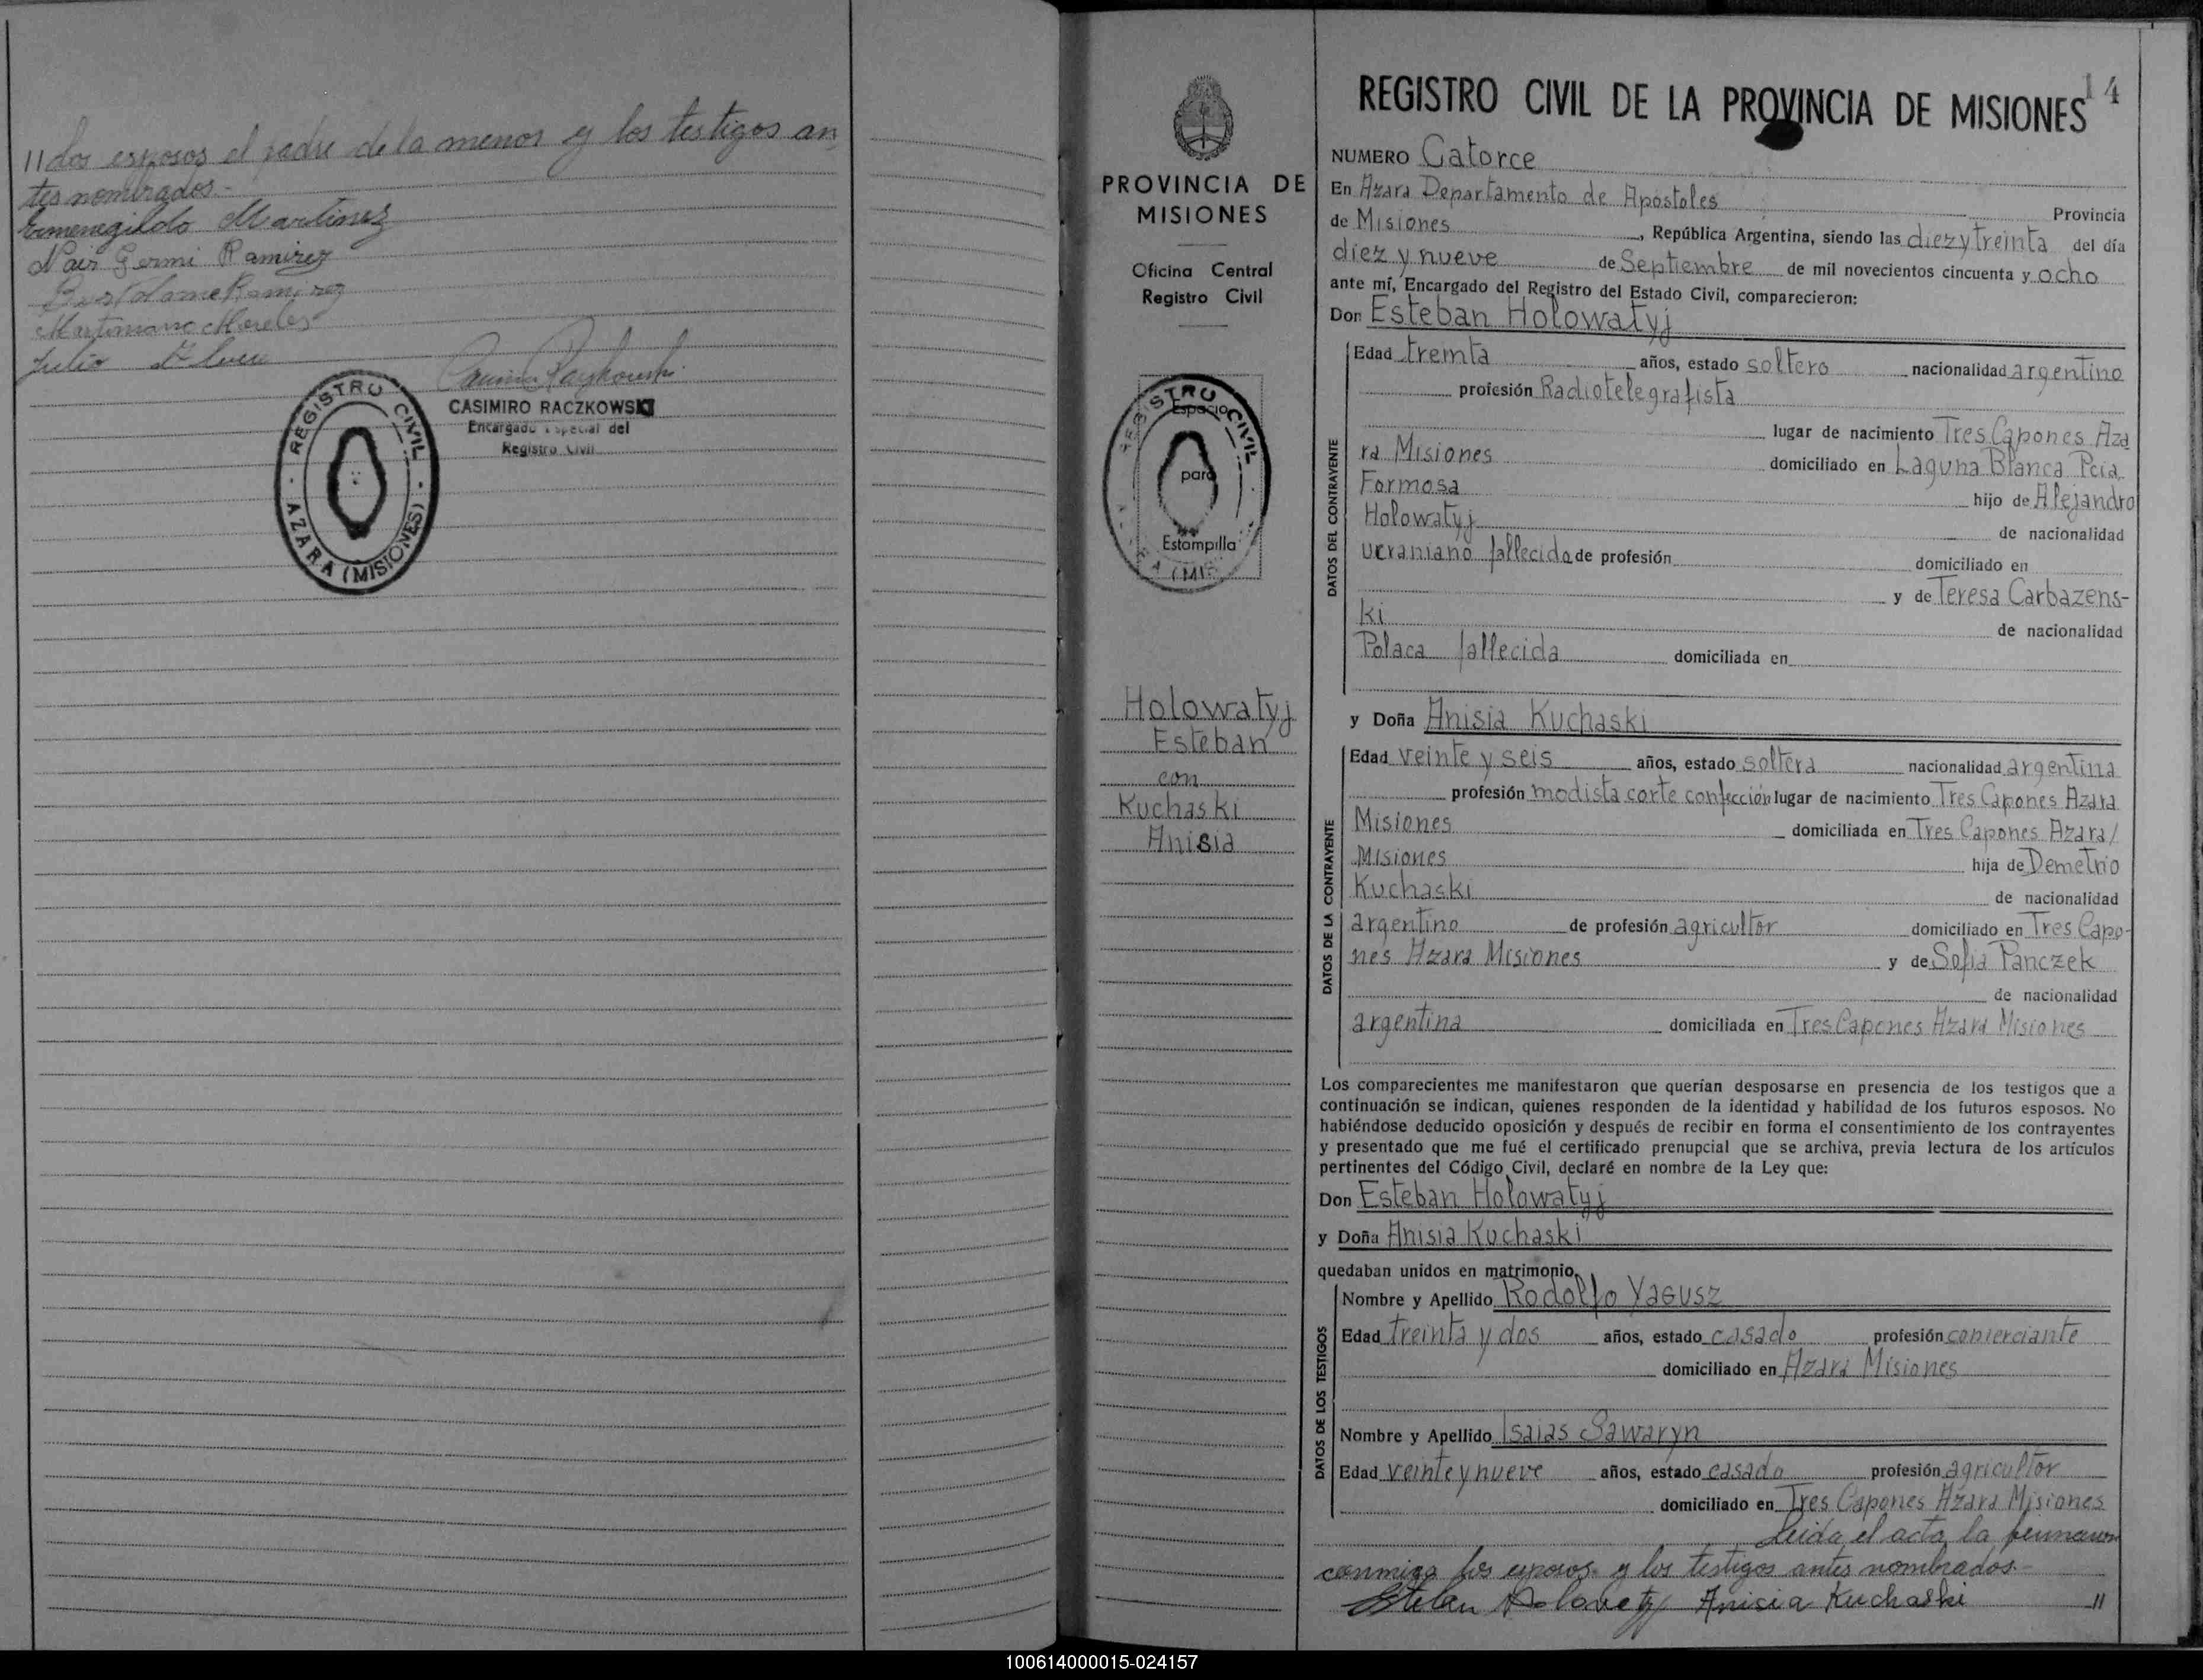 // los esposos el padre de la menor y los testigos an
tes nombrados.-
Ermenegildo Martinez
Nair Germi Ramirez
Bartolome Ramirez
Martimiano Moreles
Julio
CASIMIRO RACZKOWSKI
Encargado Especial del
Registro Civil
REGISTRO CIVIL
AZARA (MISIONES)
PROVINCIA DE
MISIONES
Oficina Central
Registro Civil
REGISTRO CIVIL
Espacio
para
Estampilla
Holowatyj
Esteban
con
Kuchaski
Anisia
14
REGISTRO CIVIL DE LA PROVINCIA DE MISIONES
NUMERO Catorce
En Azara Departamento de Apostoles Provincia
de Misiones, República Argentina, siendo las diez y treinta del día
diez y nueve de Septiembre de mil novecientos cincuenta y ocho
ante mí, Encargado del Registro del Estado Civil, comparecieron:
Don Esteban Holowatyj
DATOS DEL CONTRAYENTE
Edad treinta años, estado soltero nacionalidad argentino
profesión Radiotelegrafista
lugar de nacimiento Tres Capones Aza
ra Misiones domiciliado en Laguna Blanca Pcia.
Formosa hijo de Alejandro
Holowatyj de nacionalidad
ucraniano fallecido de profesión domiciliado en
y de Teresa Carbazens-
ki de nacionalidad
Polaca fallecida domiciliada en
y Doña Anisia Kuchaski
DATOS DE LA CONTRAYENTE
Edad veinte y seis años, estado soltera nacionalidad argentina
profesión modista corte confección lugar de nacimiento Tres Capones Azara
Misiones domiciliada en Tres Capones Azara/
Misiones hija de Demetrio
Kuchaski de nacionalidad
argentino de profesión agricultor domiciliado en Tres Capo-
nes Azara Misiones y de Sofia Panczek
de nacionalidad
argentina domiciliada en Tres Capones Azara Misiones
Los comparecientes me manifestaron que querían desposarse en presencia de los testigos que a
continuación se indican, quienes responden de la identidad y habilidad de los futuros esposos. No
habiéndose deducido oposición y después de recibir en forma el consentimiento de los contrayentes
y presentado que me fué el certificado prenupcial que se archiva, previa lectura de los artículos
pertinentes del Código Civil, declaré en nombre de la Ley que:
Don Esteban Holowatyj
y Doña Anisia Kuchaski
quedaban unidos en matrimonio.
DATOS DE LOS TESTIGOS
Nombre y Apellido Rodolfo Yagusz
Edad treinta y dos años, estado casado profesión comerciante
domiciliado en Azara Misiones
Nombre y Apellido Isaias Sawaryn
Edad veinte y nueve años, estado casado profesión agricultor
domiciliado en Tres Capones Azara Misiones
Leida el acta la firmaron
conmigo los esposos y los testigos antes nombrados.-
Esteban Holowatyj Anisia Kuchaski //
100614000015-024157